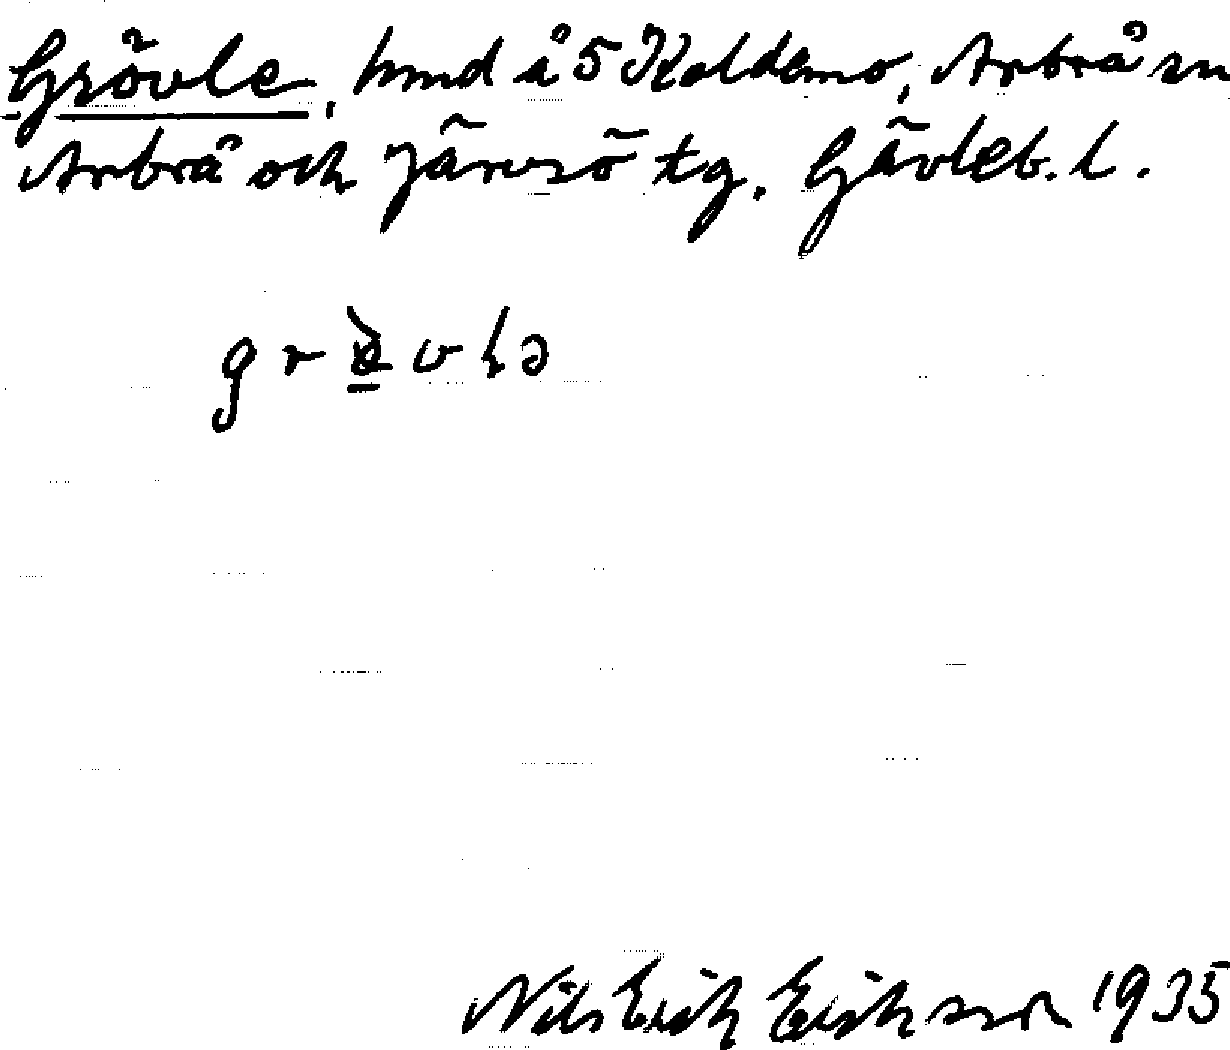 Grövle, hmd å 5 Koldemo, Arbrå sn
Arbrå och Järvsö tg. Gävleb. l.
Nils Erik Eriksson 1935